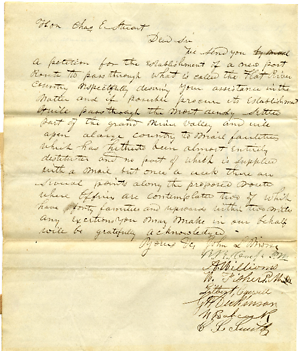 Hon Chas E. Stuart
Dear Sir
We send you
a petition for the establishment of a new post
Route to pass through what is called the Flat River
Country respectfully desiring your assistance in the
Matter and if possible procure its establishment
passes through the most
part of the grand River Valley and will
open a large country to mail facilities
which has hitherto been almost entirely
destitute and no part of which is supplied
with a mail but once a week there are
several points along the proposed route
where offices are contemplated two of which
have forty families and upwards within two miles
Any exertion you may make in our behalf
will be gratefully acknowledged
Yours &c John L
A Williams
W. Fisher P.M.
Dickinson
N Babcock
Smith